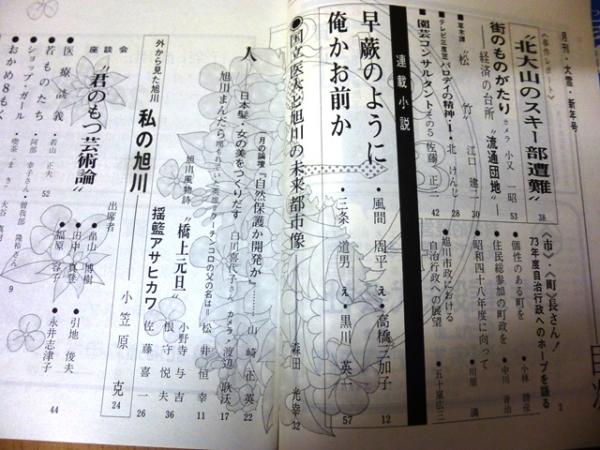 月刊・大雪・新年号
〈市〉・〈町〉長さん!
73年度自治行政へのホープを語る
●個性のある町を
●小林 勝彦
●住民総参加の町政を
●中川 音治
●昭和四十八年度に向って
●川原 満
●旭川市政における
自治行政への展望
●五十嵐広三
2
“北大山のスキー部遭難”
38
街のものがたり
経済の台所“流通団地”
カメラ 小又 一昭
53
■草木譜
“松 竹”
江口 建二
30
北 けんじ
28
■園芸コンサルタント その5
佐藤 正二
42
連載小説
早蕨のように
・風間 周平
え・高橋三加子
12
俺かお前か
・三条 道男
え・黒川 英一
57
●国立医大と旭川の未来都市像
森田 光幸
32
人
日本髪・女の美をつくりだす
白川喜代子さん
カメラ・渡辺
17
月の論壇
『自然保護か開発か』
山崎 正英
22
松井 恒幸
11
旭川風物詩
“橋上元旦”
小野寺 与吉
根守 悦夫
36
外から見た旭川
私の旭川
揺籃アサヒカワ
佐藤 喜一
26
小笠原 克
24
座談会
“君のもつ芸術論”
出席者
●畠山 博樹
●田中 真登
●福原 容子
●引地 俊夫
●永井志津子
44
●医療談義
若山 正夫
52
●若ものたち
●ショップ・ガール
阿部 幸子さん
9
●おかめ8もく